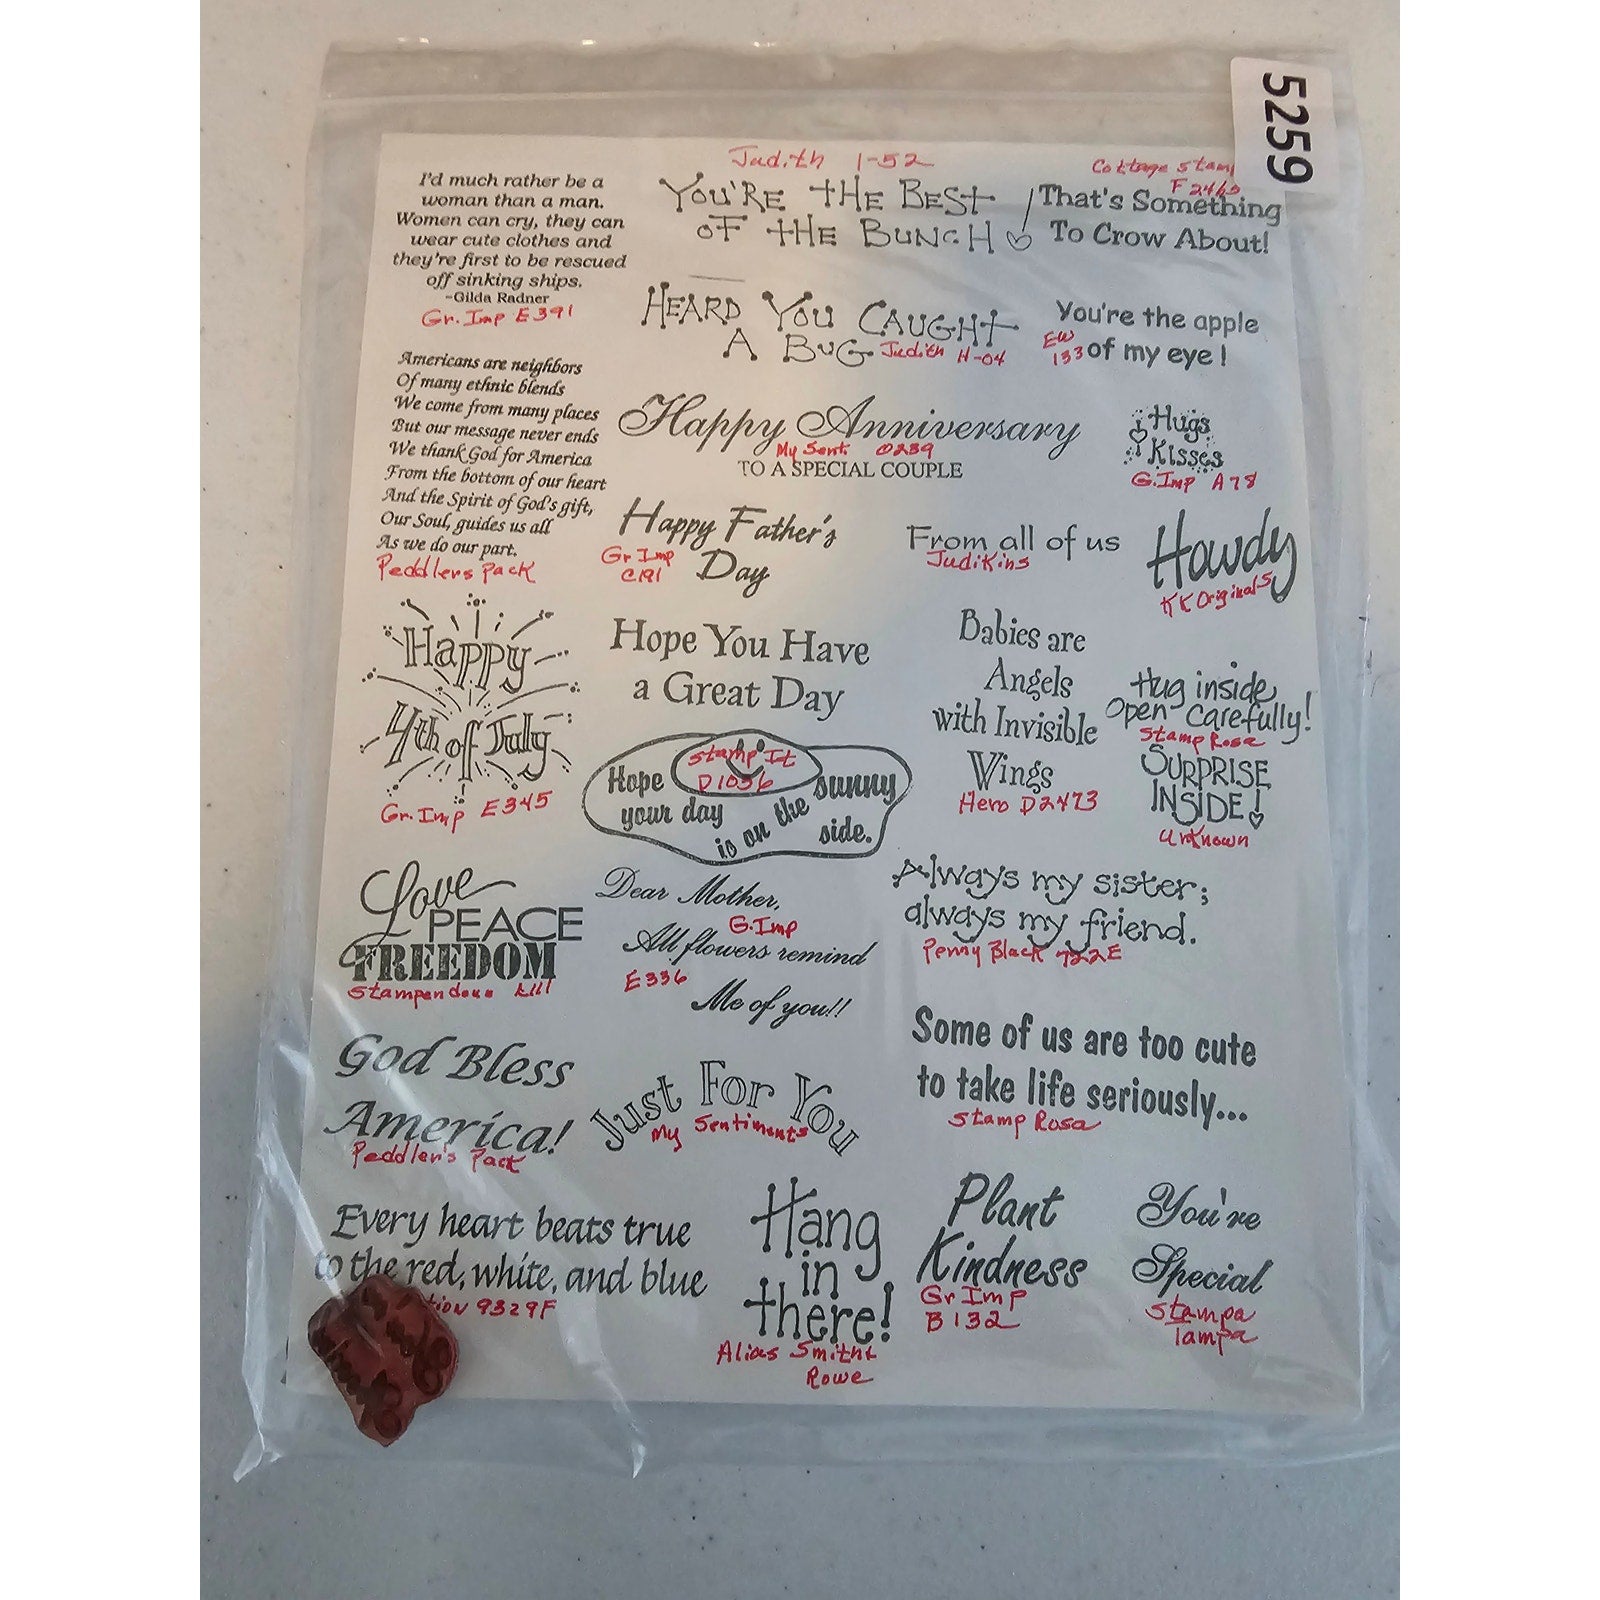 5259
Judith 1-52
Cottage Stam
F 2465
I'd much rather be a
woman than a man.
Women can cry, they can
wear cute clothes and
they're first to be rescued
off sinking ships.
-Gilda Radner
Gr. Imp E391
YOU'RE THE BEST
OF THE BUNCH
That's Something
To Crow About!
HEARD YOU CAUGHT
A BUG
Judith H-04
You're the apple
of my eye!
EW
133
Americans are neighbors
Of many ethnic blends
We come from many places
But our message never ends
We thank God for America
From the bottom of our heart
And the Spirit of God's gift,
Our Soul, guides us all
As we do our part.
Peddlers Pack
Happy Anniversary
My Sent. 0239
TO A SPECIAL COUPLE
Hugs
Kisses
G.Imp A78
Happy Father's
Day
Gr Imp
C191
From all of us
JudiKins
Howdy
KK Originals
Happy
4th of July
Gr. Imp E345
Hope You Have
a Great Day
Babies are
Angels
with Invisible
Wings
Hero D2473
Hug inside
Open carefully!
Stamp Rosa
SURPRISE
INSIDE!
Unknown
Stamp It
D1036
Hope
your day
is on the
sunny
side.
Love
PEACE
FREEDOM
Stampendous
Dear Mother,
G.Imp
All flowers remind
E336
Me of you!!
Always my sister;
always my friend.
Penny Black 722E
God Bless
America!
Peddler's Pack
Just For You
My Sentiments
Some of us are too cute
to take life seriously...
Stamp Rosa
Every heart beats true
to the red, white, and blue
tion 9329F
Hang
in
there!
Alias Smith+
Rowe
Plant
Kindness
Gr Imp
B132
You're
Special
Stampa
Tampa